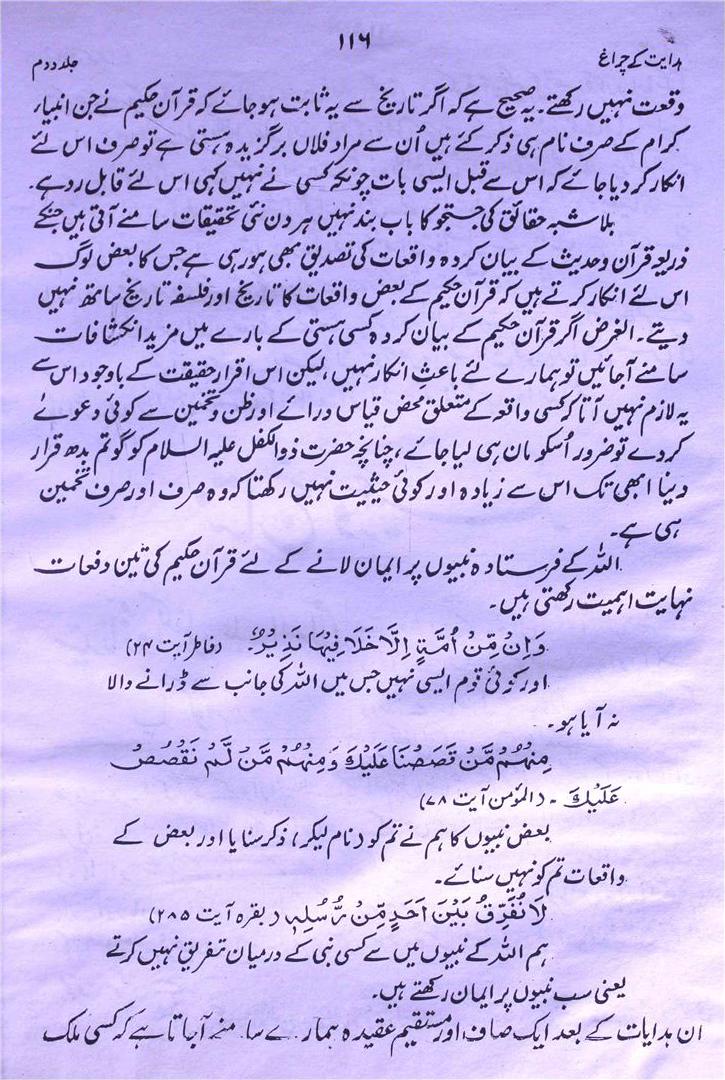 ہدایت کے چراغ
۱۱۶
جلد دوم
وقعت نہیں رکھتے۔ یہ صحیح ہے کہ اگر تاریخ سے یہ ثابت ہو جائے کہ قرآن حکیم نے جن انبیاء
کرام کے صرف نام ہی ذکر کئے ہیں اُن سے مراد فلاں برگزیدہ ہستی ہے تو صرف اس لئے
انکار کر دیا جائے کہ اس سے قبل ایسی بات چونکہ کسی نے نہیں کہی اس لئے قابل رد ہے۔
بلاشبہ حقائق کی جستجو کا باب بند نہیں ہر دن نئی تحقیقات سامنے آتی ہیں جنکے
ذریعہ قرآن و حدیث کے بیان کردہ واقعات کی تصدیق بھی ہو رہی ہے جس کا بعض لوگ
اس لئے انکار کرتے ہیں کہ قرآن حکیم کے بعض واقعات کا تاریخ اور فلسفہ تاریخ ساتھ نہیں
دیتے۔ الغرض اگر قرآن حکیم کے بیان کردہ کسی ہستی کے بارے میں مزید انکشافات
سامنے آجائیں تو ہمارے لئے باعثِ انکار نہیں، لیکن اس اقرار حقیقت کے باوجود اس سے
یہ لازم نہیں آتا کہ کسی واقعہ کے متعلق محض قیاس و رائے اور ظن و تخمین سے کوئی دعوےٰ
کر دے تو ضرور اُسکو مان ہی لیا جائے، چنانچہ حضرت ذوالکفل علیہ السلام کو گوتم بدھ قرار
دینا ابھی تک اس سے زیادہ اور کوئی حیثیت نہیں رکھتا کہ وہ صرف اور صرف تخمین
ہی ہے۔
اللہ کے فرستادہ نبیوں پر ایمان لانے کے لئے قرآن حکیم کی تین دفعات
نہایت اہمیت رکھتی ہیں۔
وَاِنْ مِّنْ اُمَّةٍ اِلَّا خَلَا فِيْهَا نَذِيْرٌ۔ (فاطر آیت ۲۴)
اور کوئی قوم ایسی نہیں جس میں اللہ کی جانب سے ڈرانے والا
نہ آیا ہو۔
مِنْهُمْ مَّنْ قَصَصْنَا عَلَيْكَ وَمِنْهُمْ مَّنْ لَّمْ نَقْصُصْ
عَلَيْكَ۔ (المؤمن آیت ۷۸)
بعض نبیوں کا ہم نے تم کو (نام لیکر) ذکر سنایا اور بعض کے
واقعات تم کو نہیں سنائے۔
لَا نُفَرِّقُ بَيْنَ اَحَدٍ مِّنْ رُّسُلِهٖ (بقرہ آیت ۲۸۵)
ہم اللہ کے نبیوں میں سے کسی نبی کے درمیان تفریق نہیں کرتے
یعنی سب نبیوں پر ایمان رکھتے ہیں۔
ان ہدایات کے بعد ایک صاف اور مستقیم عقیدہ ہمارے سامنے آجاتا ہے کہ کسی ملک